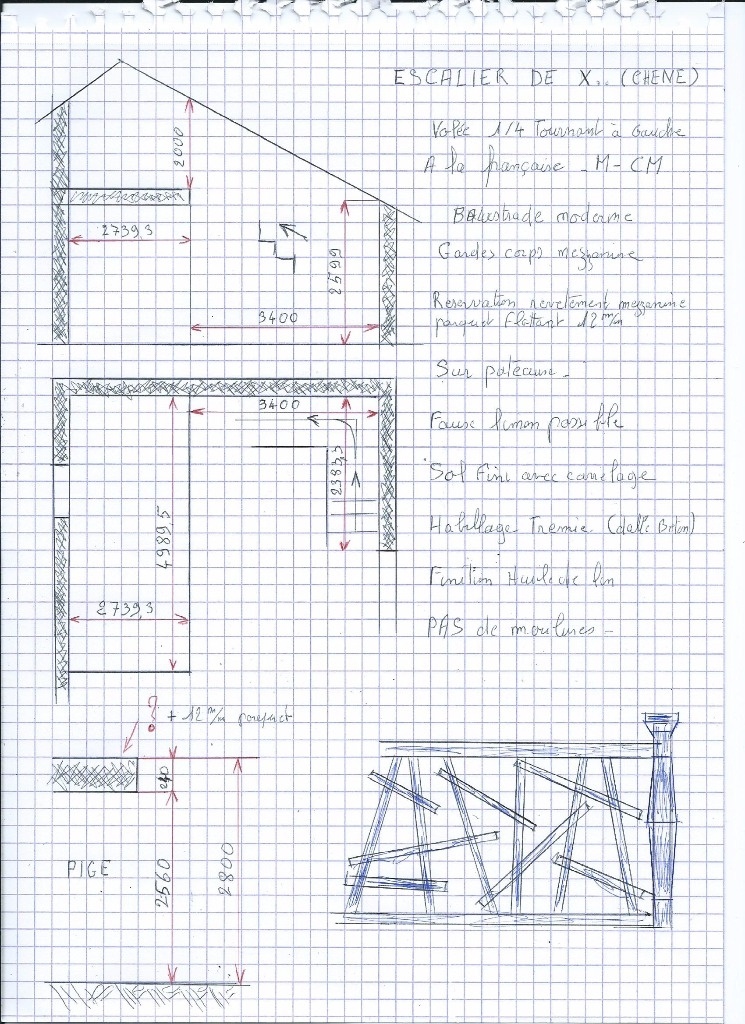 ESCALIER DE X.. (CHENE)
Volée 1/4 Tournant à Gauche
A la française - M-CM
Balustrade moderne
Gardes corps mezzanine
Reservation revêtement mezzanine
parquet flottant 12 m/m
Sur poteaux -
Faux limon possible
Sol Fini avec carrelage
Habillage Tremie (dalle Béton)
Finition Huile de lin
PAS de moulures -
2000
2739,3
2599
3400
3400
2383,5
4989,5
2739,3
? + 12 m/m parquet
240
PIGE
2560
2800